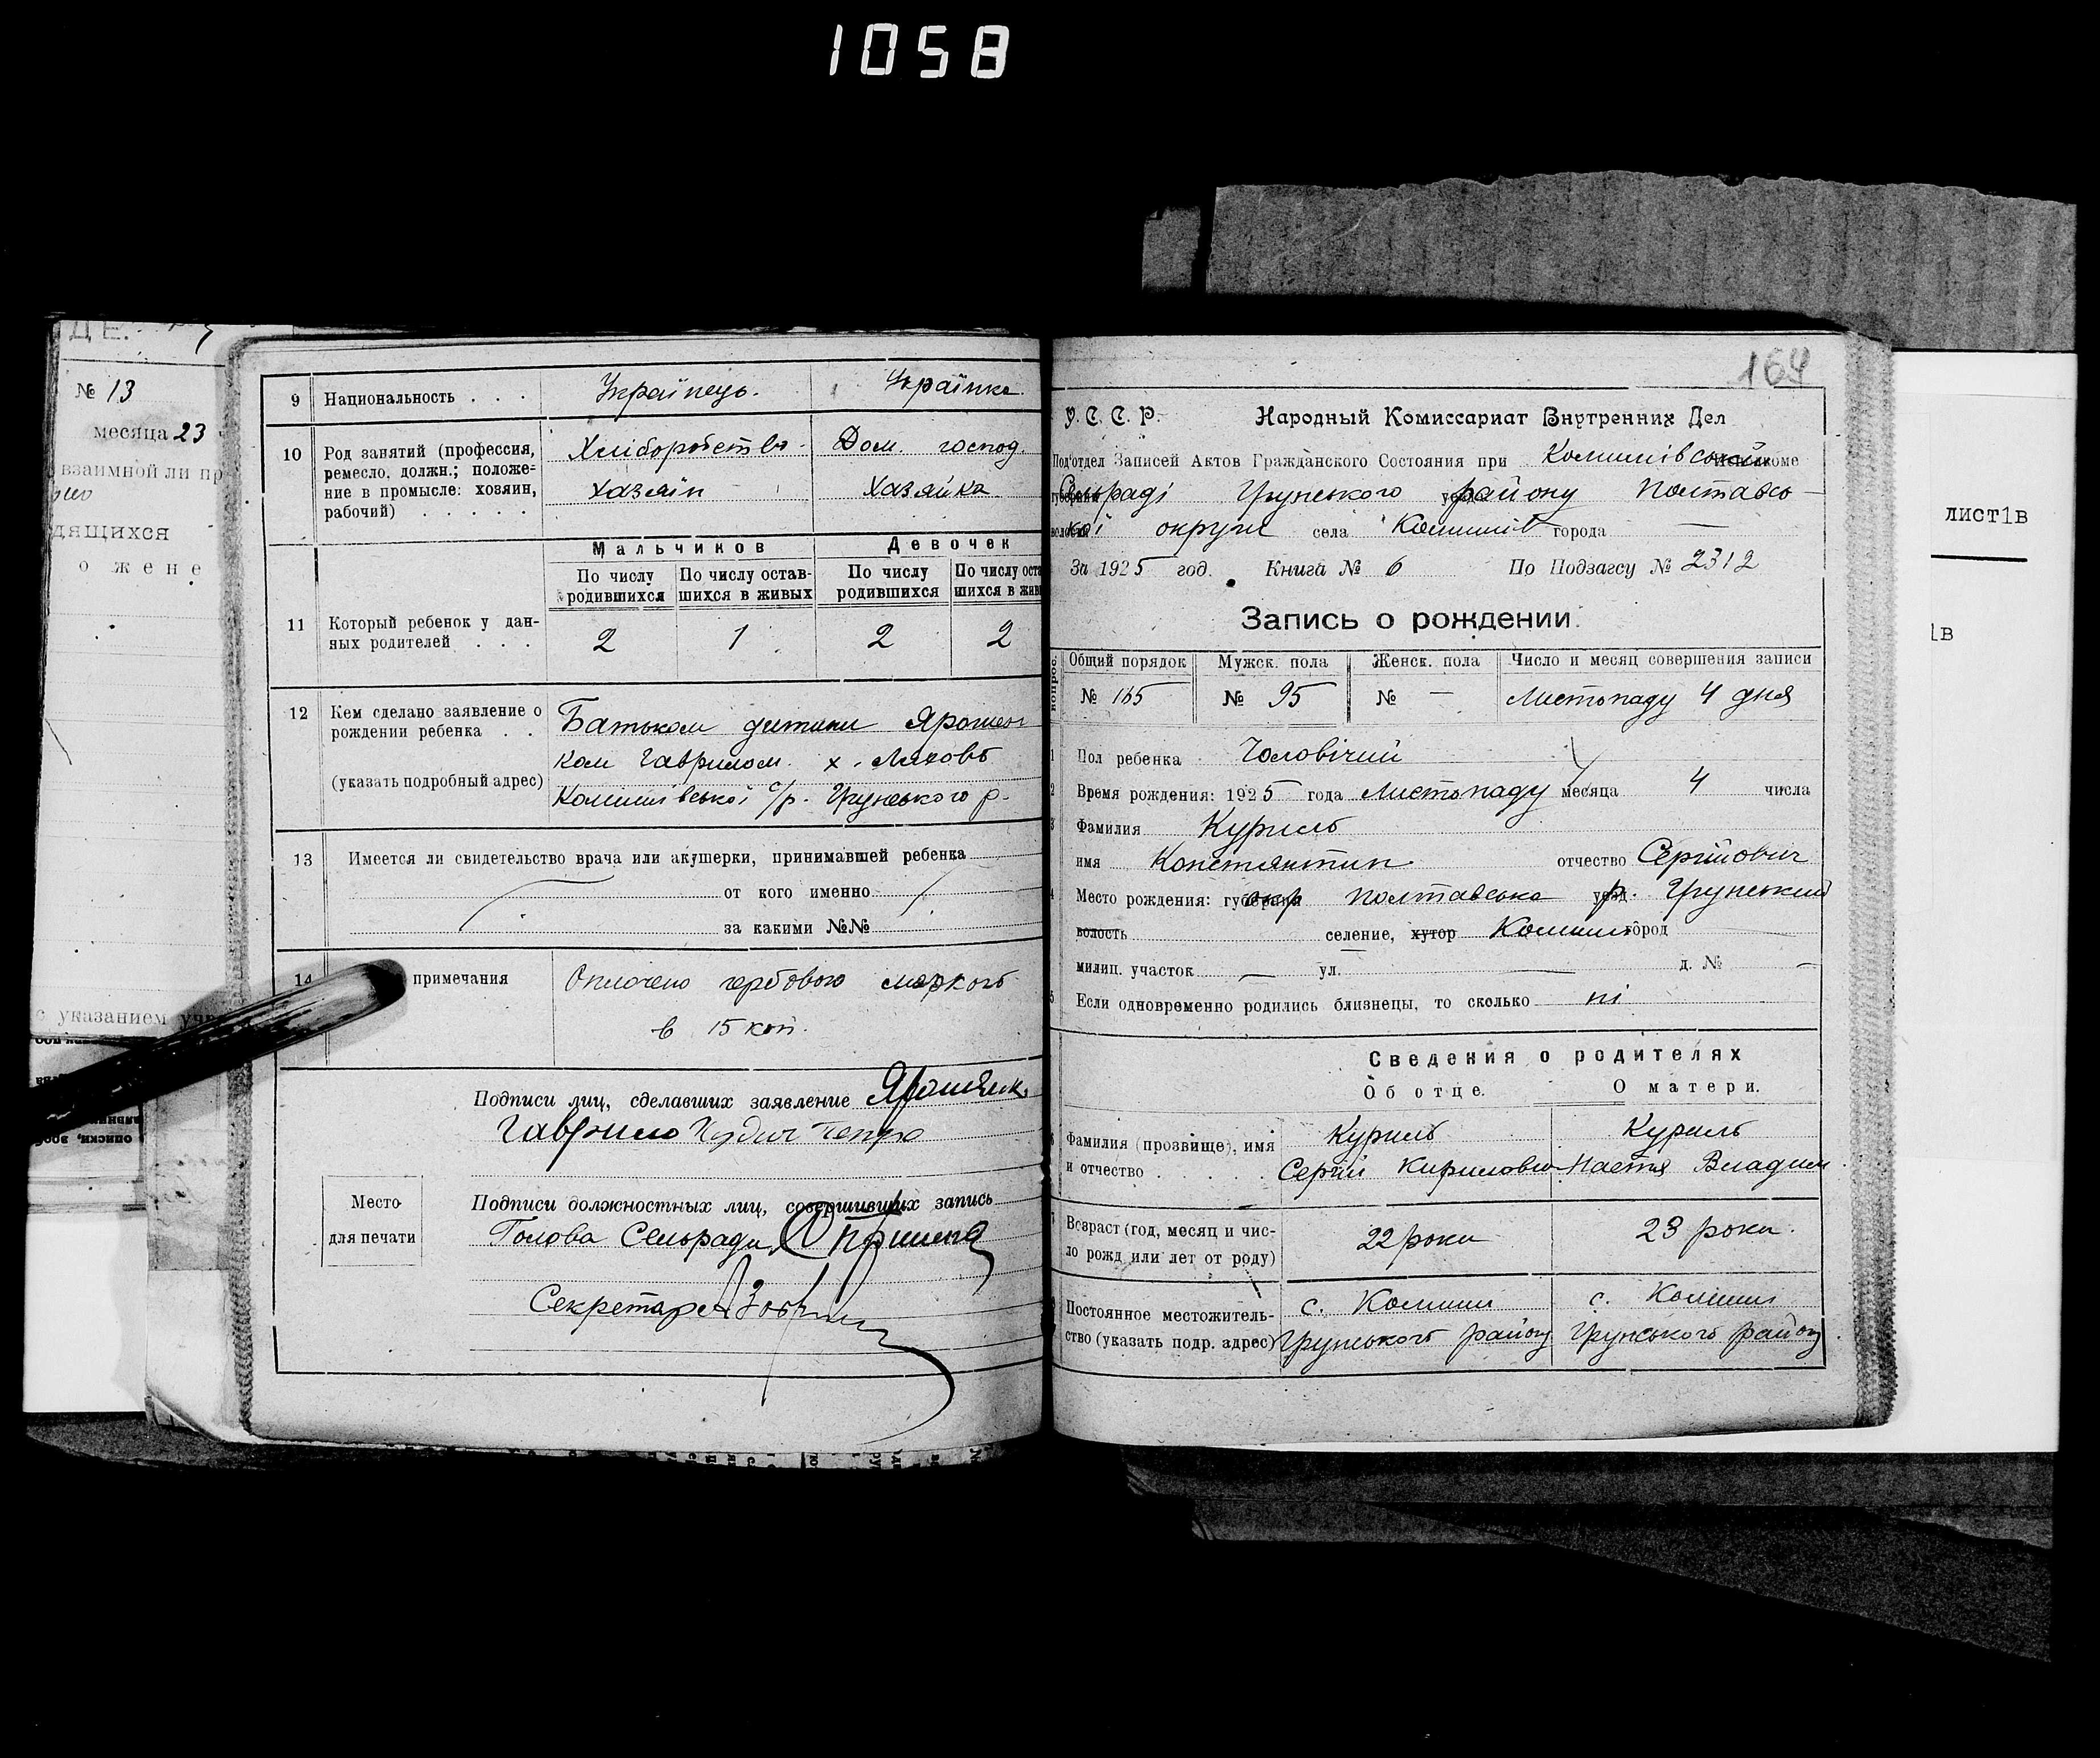 1058
№ 13
месяца 23
взаимной ли пр
дящихся
о жене
с указанием
9 Национальность . . . Українець. Українка.
10 Род занятий (профессия, ремесло, должн.; положе-
ние в промысле: хозяин, рабочий) . . . . .
Хліборобство Дом. господ.
хазяїн Хазяйка
Мальчиков Девочек
По числу родившихся По числу остав-шихся в живых По числу родившихся По числу оста шихся в жив
11 Который ребенок у дан-
ных родителей . . . 2 1 2 2
12 Кем сделано заявление о
рождении ребенка . .
(указать подробный адрес)
Батьком дитини Ярошен
ком Гаврилом х.
Комишівської с/р. Грунського р.
13 Имеется ли свидетельство врача или акушерки, принимавшей ребенка
от кого именно
за какими №№
14 примечания Оплачено гербовою маркою
в 15 коп.
Подписи лиц, сделавших заявление
Гаврило
Место
для печати
Подписи должностных лиц, совершивших запись
Голова Сельради
Секретар
164
У. С. С. Р. Народный Комиссариат Внутренних Дел
Под'отдел Записей Актов Гражданского Состояния при Комишівській
Сельраді Грунського району Полтавсь-
кої округи села Комиші города —
За 1925 год. Книга № 6 По Подзагсу № 2312
Запись о рождении.
Общий порядок Мужск. пола Женск. пола Число и месяц совершения записи
№ 165 № 95 № — Листопаду 4 дня
Пол ребенка Чоловічий
Время рождения: 1925 года Листопаду месяца 4 числа
Фамилия Куриль
имя Констянтин отчество Сергійович
Место рождения: губерния окр Полтавська уезд р. Грунський
волость селение, хутор Комиші город
милиц. участок — ул. — д. № —
Если одновременно родились близнецы, то сколько ні
Сведения о родителях
Об отце. О матери.
Фамилия (прозвище), имя
и отчество . . . . .
Куриль Куриль
Сергій Кирилович Настя Владим.
Возраст (год, месяц и чис-
ло рожд или лет от роду)
22 роки 23 роки.
Постоянное местожитель-
ство (указать подр. адрес)
с. Комиші с. Комиші
Грунського району Грунського району
лист1в
1в